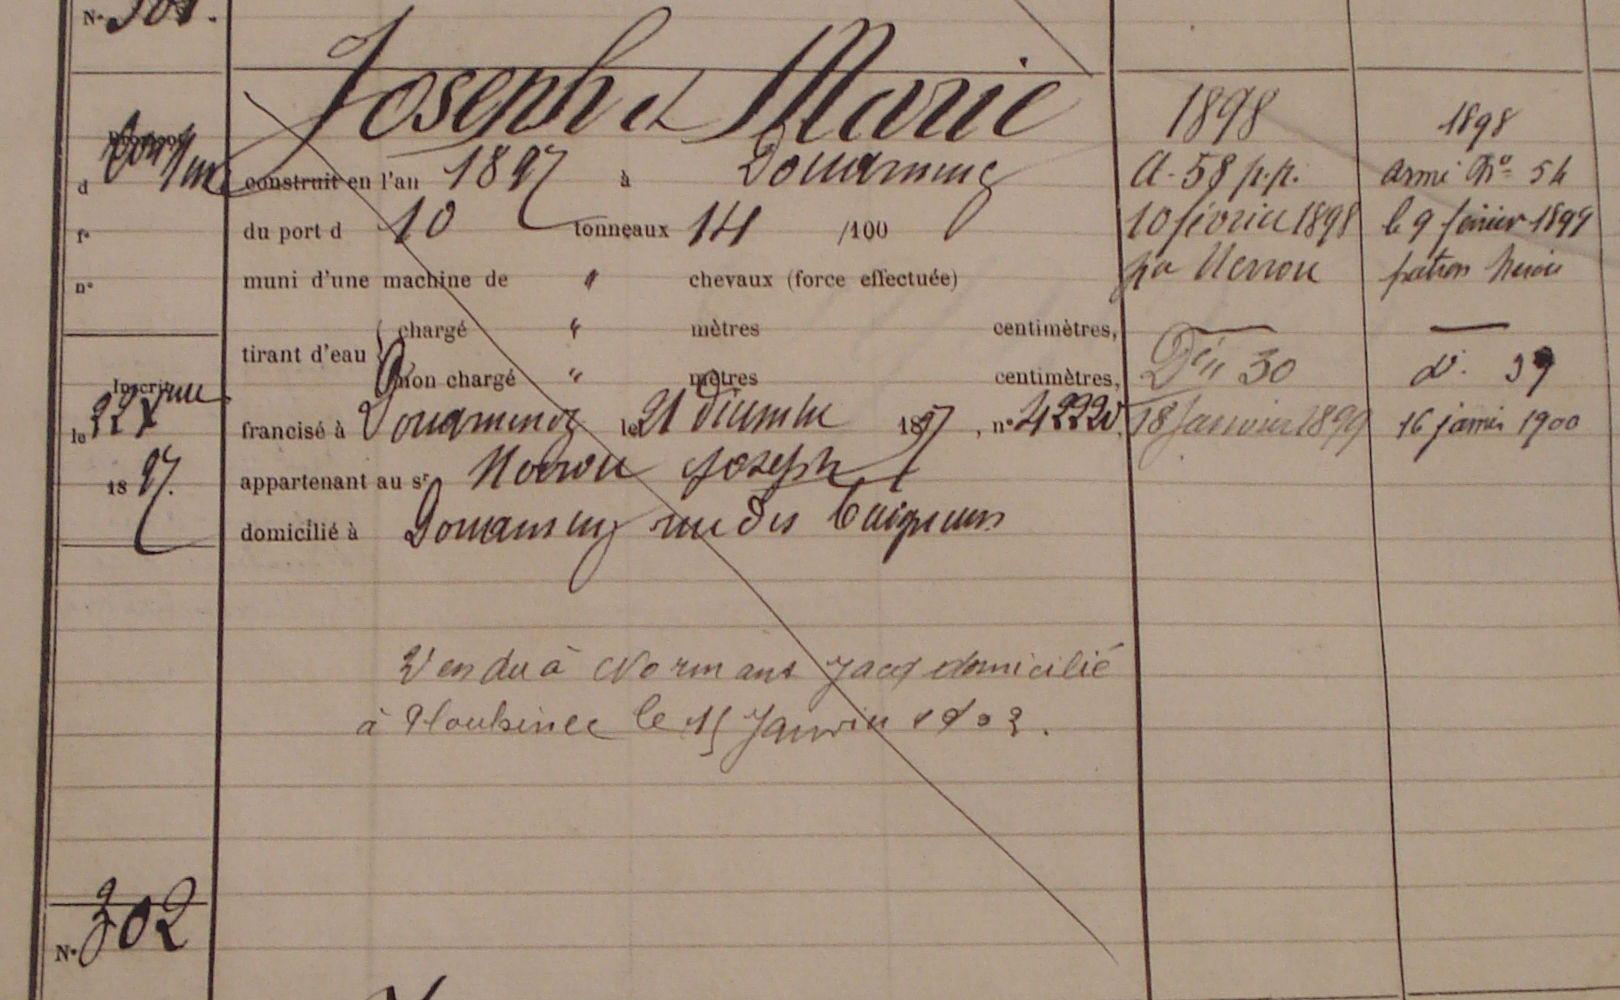 N° 301.
Joseph et Marie
d
construit en l'an 1897 à Douarnenez
du port d 10 tonneaux 14 /100
f°
muni d'une machine de " chevaux (force effectuée)
n°
tirant d'eau
chargé " mètres centimètres,
non chargé " mètres centimètres,
Inscrit
le 22 X
1897.
francisé à Douarnenez le 21 décembre 1897, n° 4222
appartenant au sr Joseph
domicilié à Douarnenez rue des
Vendu à Normant Jacq domicilié
à Plouhinec le 15 Janvier 1902.
N° 302
1898
A. 58 p.p.
10 février 1898
par
Dn 30
18 Janvier 1899
1898
armé N° 54
le 9 février 1899
patron
d°. 39
16 janvier 1900